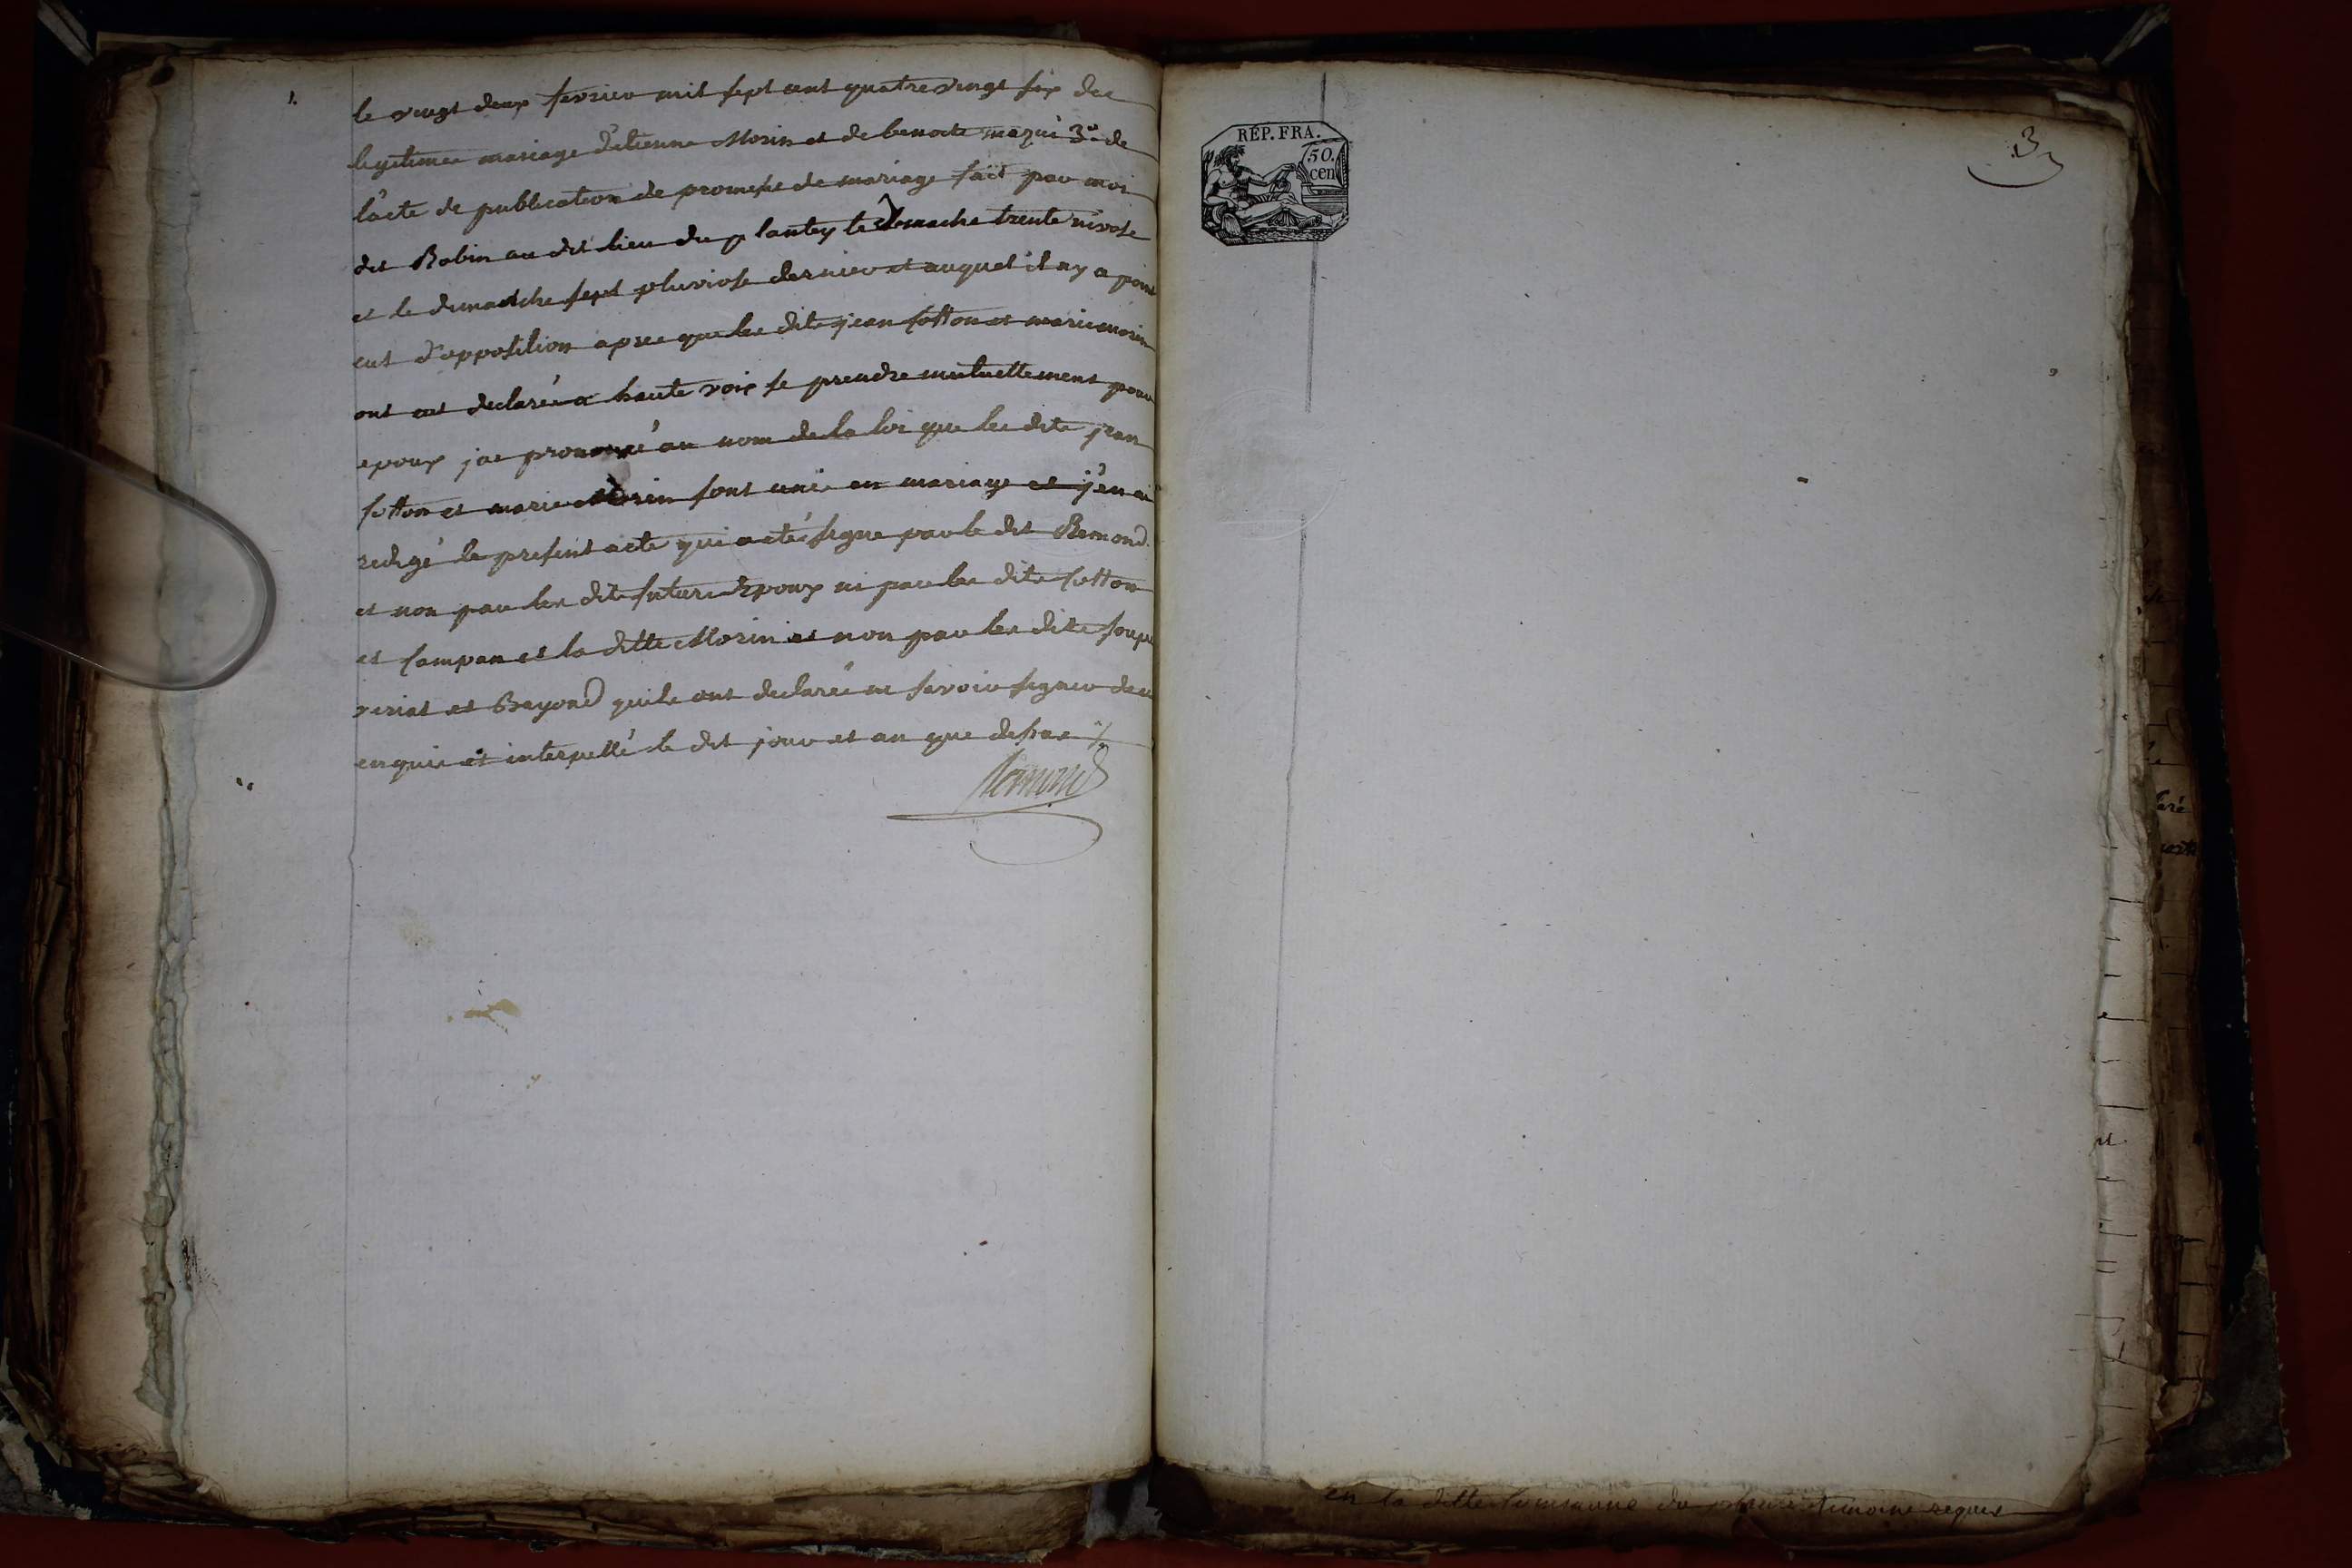 1.
le vingt deux fevrier mil sept cent quatre vingt six du
legitime mariage d'etienne Morin et de benoite 3° de
l'acte de publication de promesse de mariage fait par moi
dit Robin au dit lieu du plantey le dimanche trente nivose
et le dimanche sept pluviose dernier et auquel il ny a point
eut d'opposition apres que les dits jean Cotton et marie morin
ont eut declaré a haute voix se prendre mutuellement pour
epoux jai prononcé au nom de la loi que les dits jean
Cotton et marie Morin sont unis en mariage et j'en ai
redigé le present acte qui a eté signe par le dit Remond
et non par les dits futurs Epoux ni par les dits Cotton
et Campan et la ditte Morin et non par les dits
et Bayond quils ont declaré ne savoir signer de ce
enquis et interpellé le dit jour et an que dessus ./.
Remond
RÉP. FRA.
50.
cen
3
en la ditte Commune du